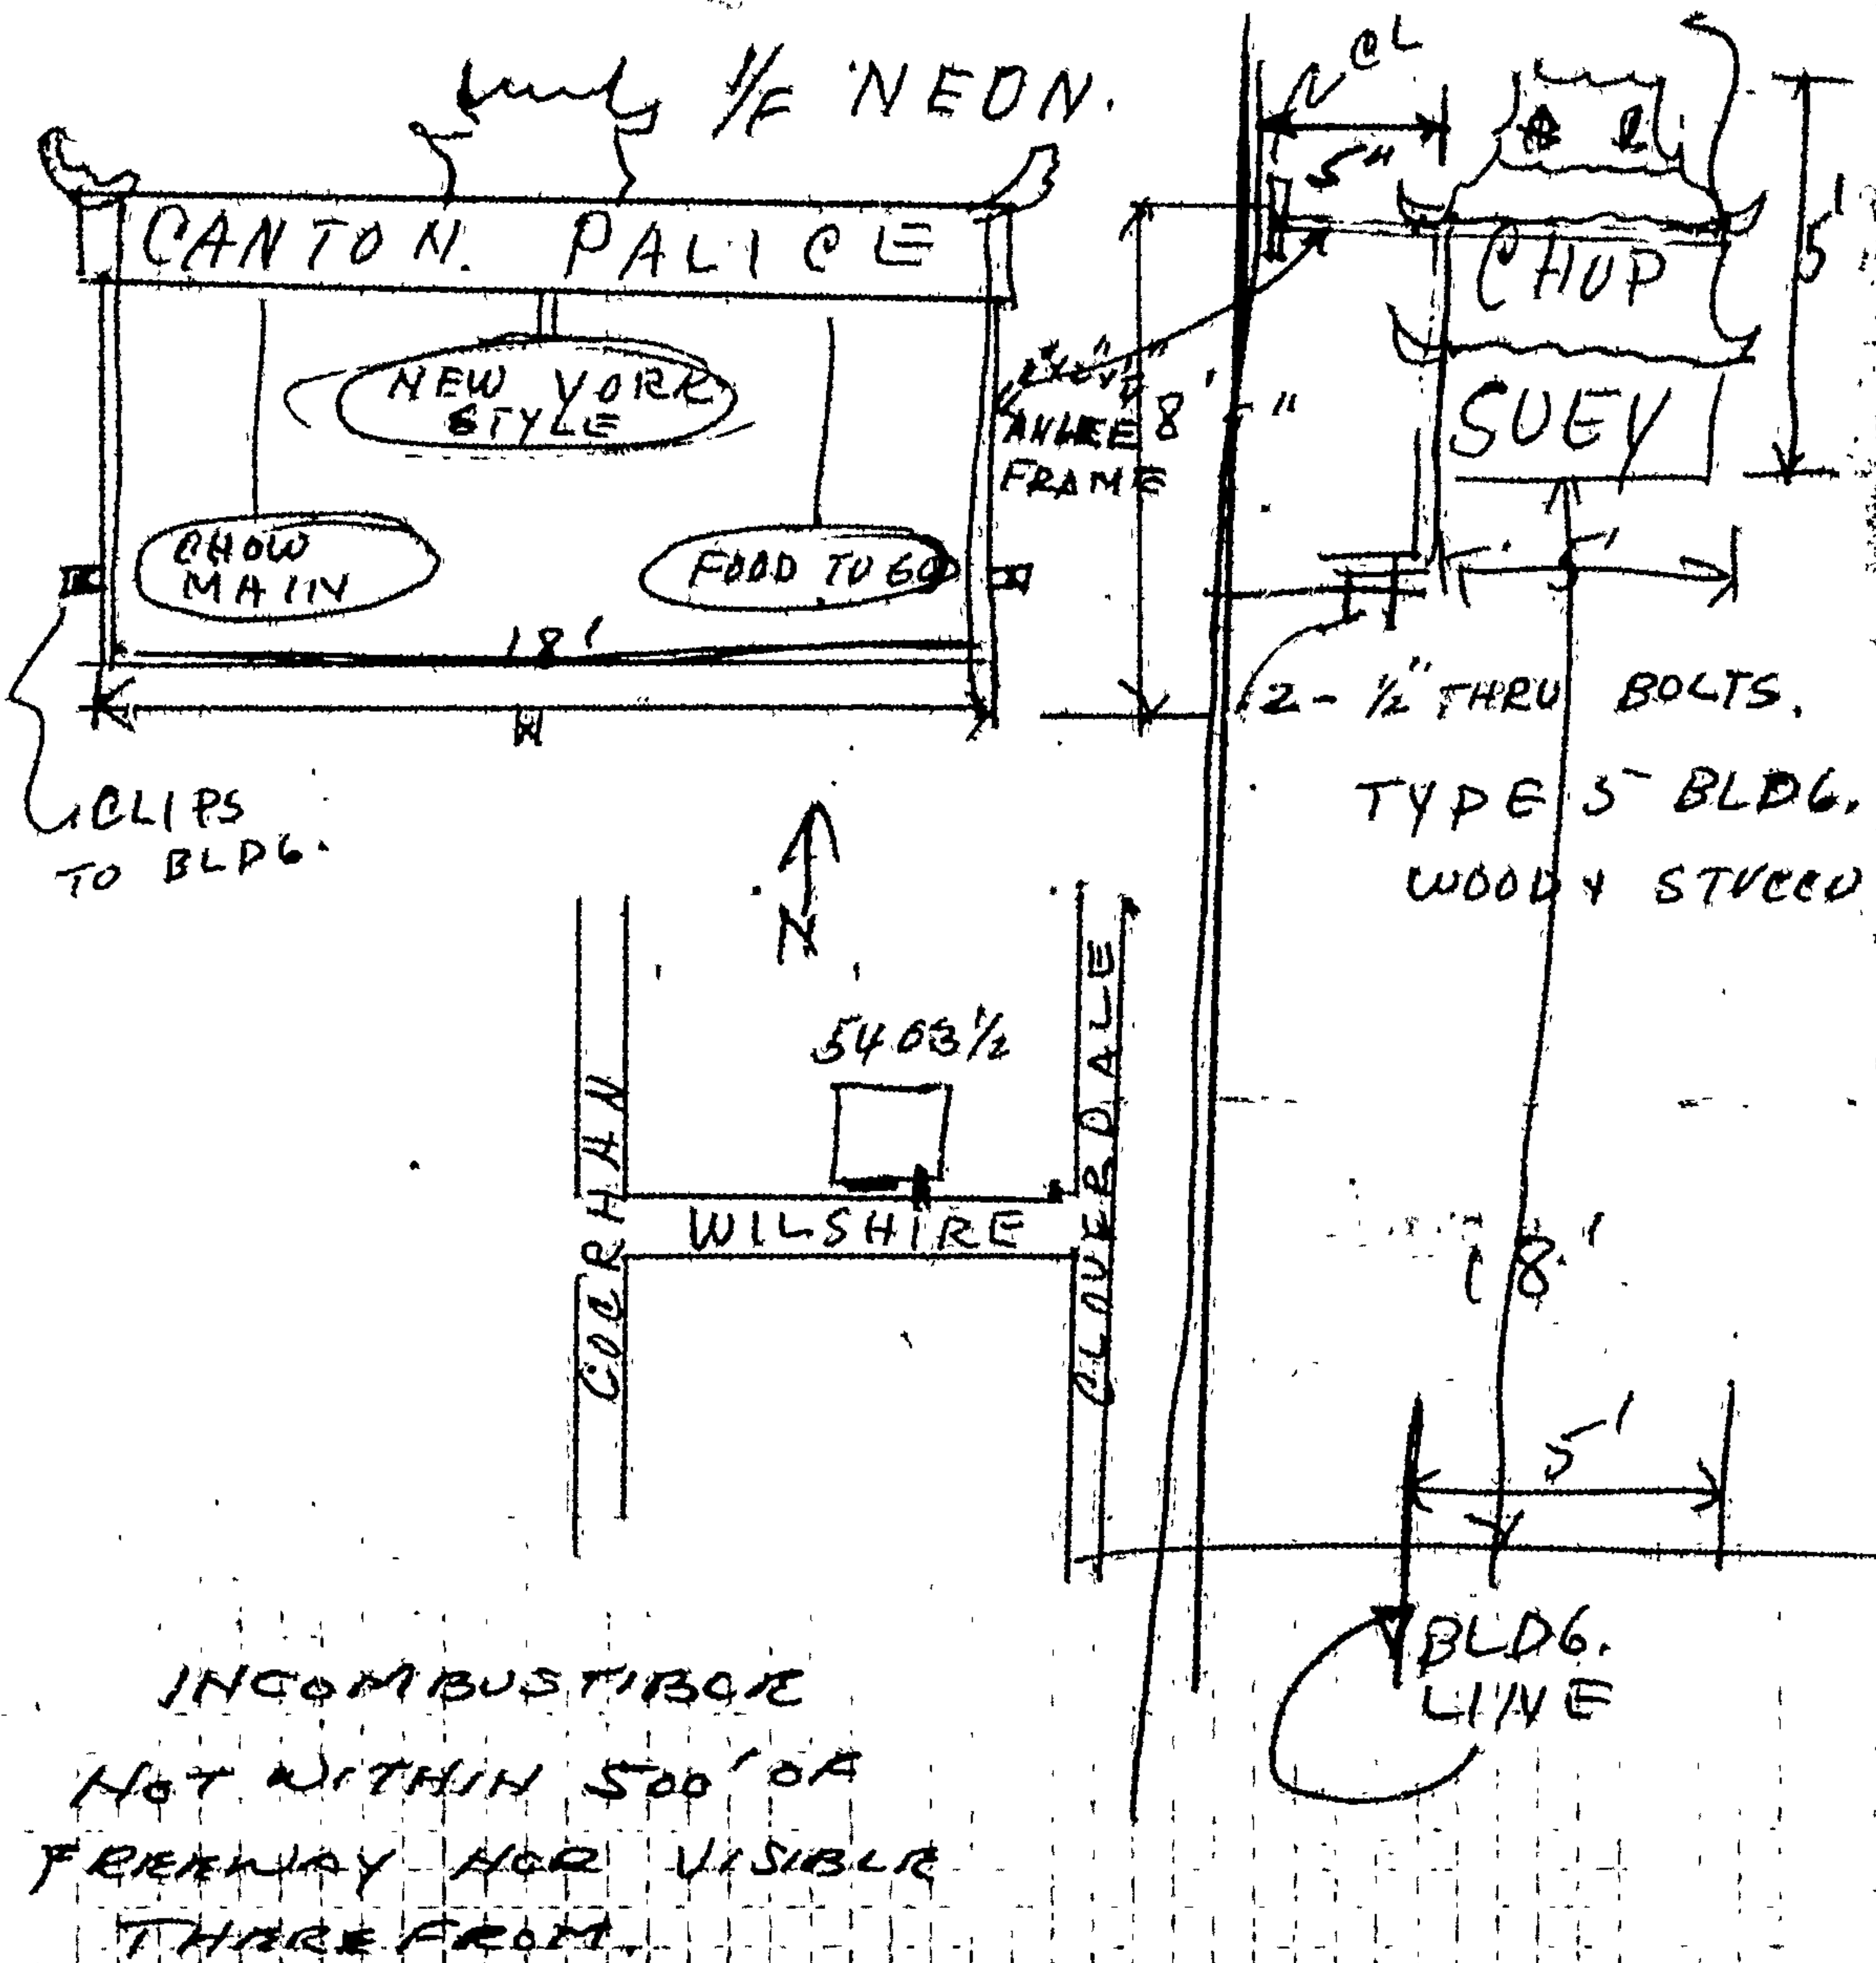 1/F NEON.
CANTON. PALICE
NEW YORK
STYLE
CHOW
MAIN
FOOD TO GO
18'
CLIPS
TO BLDG.
FRAME
8'
5"
CHOP
SUEY
5'
5'
2 - 1/2" THRU BOLTS.
TYPE 5 BLDG.
WOOD & STUCCO
N
5403 1/2
COCRHAN
WILSHIRE
CLOVERDALE
18'
5'
BLDG.
LINE
INCOMBUSTIBLE
NOT WITHIN 500' OF
FREEWAY NOR VISIBLE
THERE FROM.